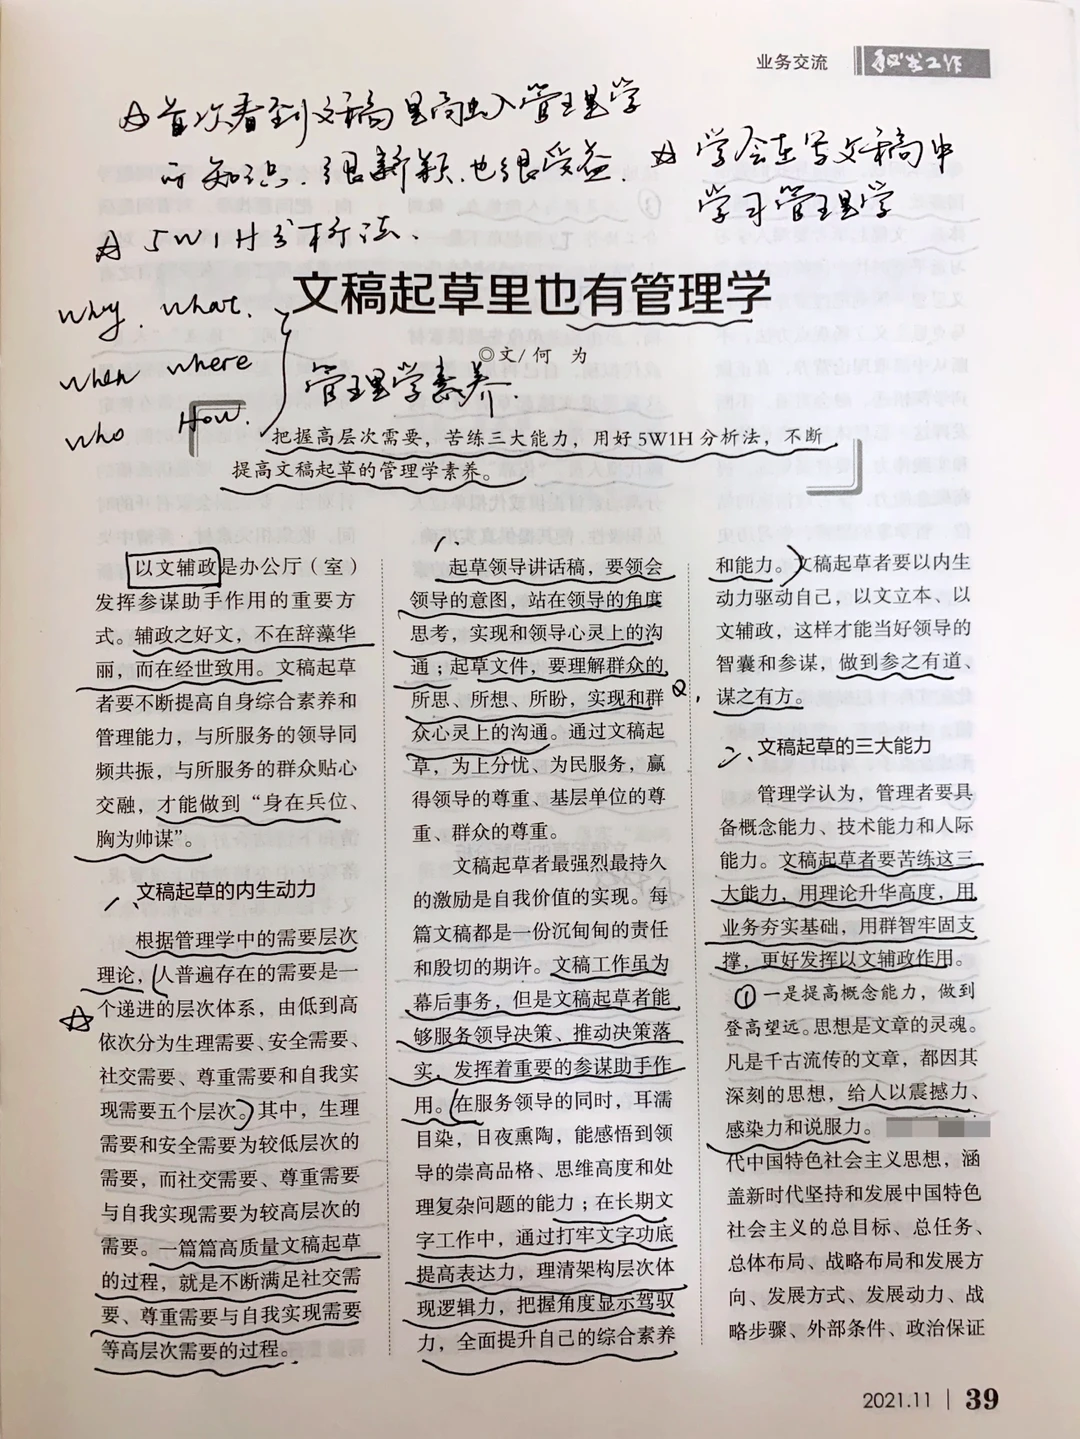 业务交流
秘书工作
☆首次看到文稿里面融入管理学
的知识.很新颖.也很受益.
☆学会在写文稿中
学习管理学
☆5W1H分析法.
why. what.
when where
who How.
管理学素养.
文稿起草里也有管理学
◎文/何 为
把握高层次需要，苦练三大能力，用好5W1H分析法，不断
提高文稿起草的管理学素养。
以文辅政是办公厅（室）
发挥参谋助手作用的重要方
式。辅政之好文，不在辞藻华
丽，而在经世致用。文稿起草
者要不断提高自身综合素养和
管理能力，与所服务的领导同
频共振，与所服务的群众贴心
交融，才能做到“身在兵位、
胸为帅谋”。
一、文稿起草的内生动力
根据管理学中的需要层次
理论，人普遍存在的需要是一
☆个递进的层次体系，由低到高
依次分为生理需要、安全需要、
社交需要、尊重需要和自我实
现需要五个层次。其中，生理
需要和安全需要为较低层次的
需要，而社交需要、尊重需要
与自我实现需要为较高层次的
需要。一篇篇高质量文稿起草
的过程，就是不断满足社交需
要、尊重需要与自我实现需要
等高层次需要的过程。
1.
起草领导讲话稿，要领会
领导的意图，站在领导的角度
思考，实现和领导心灵上的沟
通；起草文件，要理解群众的
所思、所想、所盼，实现和群
众心灵上的沟通。通过文稿起
草，为上分忧、为民服务，赢
得领导的尊重、基层单位的尊
重、群众的尊重。
文稿起草者最强烈最持久
的激励是自我价值的实现。每
篇文稿都是一份沉甸甸的责任
和殷切的期许。文稿工作虽为
幕后事务，但是文稿起草者能
够服务领导决策、推动决策落
实，发挥着重要的参谋助手作
用。在服务领导的同时，耳濡
目染，日夜熏陶，能感悟到领
导的崇高品格、思维高度和处
理复杂问题的能力；在长期文
字工作中，通过打牢文字功底
提高表达力，理清架构层次体
现逻辑力，把握角度显示驾驭
力，全面提升自己的综合素养
和能力。文稿起草者要以内生
动力驱动自己，以文立本、以
文辅政，这样才能当好领导的
智囊和参谋，做到参之有道、
谋之有方。
二、文稿起草的三大能力
管理学认为，管理者要具
备概念能力、技术能力和人际
能力。文稿起草者要苦练这三
大能力，用理论升华高度，用
业务夯实基础，用群智牢固支
撑，更好发挥以文辅政作用。
①一是提高概念能力，做到
登高望远。思想是文章的灵魂。
凡是千古流传的文章，都因其
深刻的思想，给人以震撼力、
感染力和说服力。
代中国特色社会主义思想，涵
盖新时代坚持和发展中国特色
社会主义的总目标、总任务、
总体布局、战略布局和发展方
向、发展方式、发展动力、战
略步骤、外部条件、政治保证
2021.11 | 39